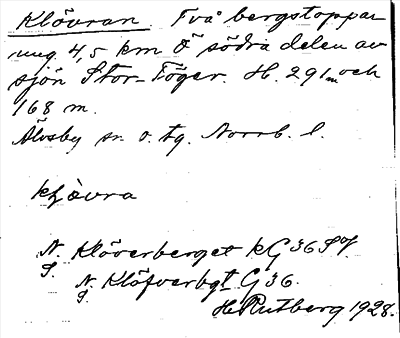 Klövran. Två bergstoppar
ung 4,5 km Ö södra delen av
sjön Stor-Töger. H. 291m och
168 m.
Älvsby sn o. tg. Norrb. l.
N. Klöverberget kG 36 SV
S.
N. Klöfverbgt G 36.
S.
H. Rutberg 1928.